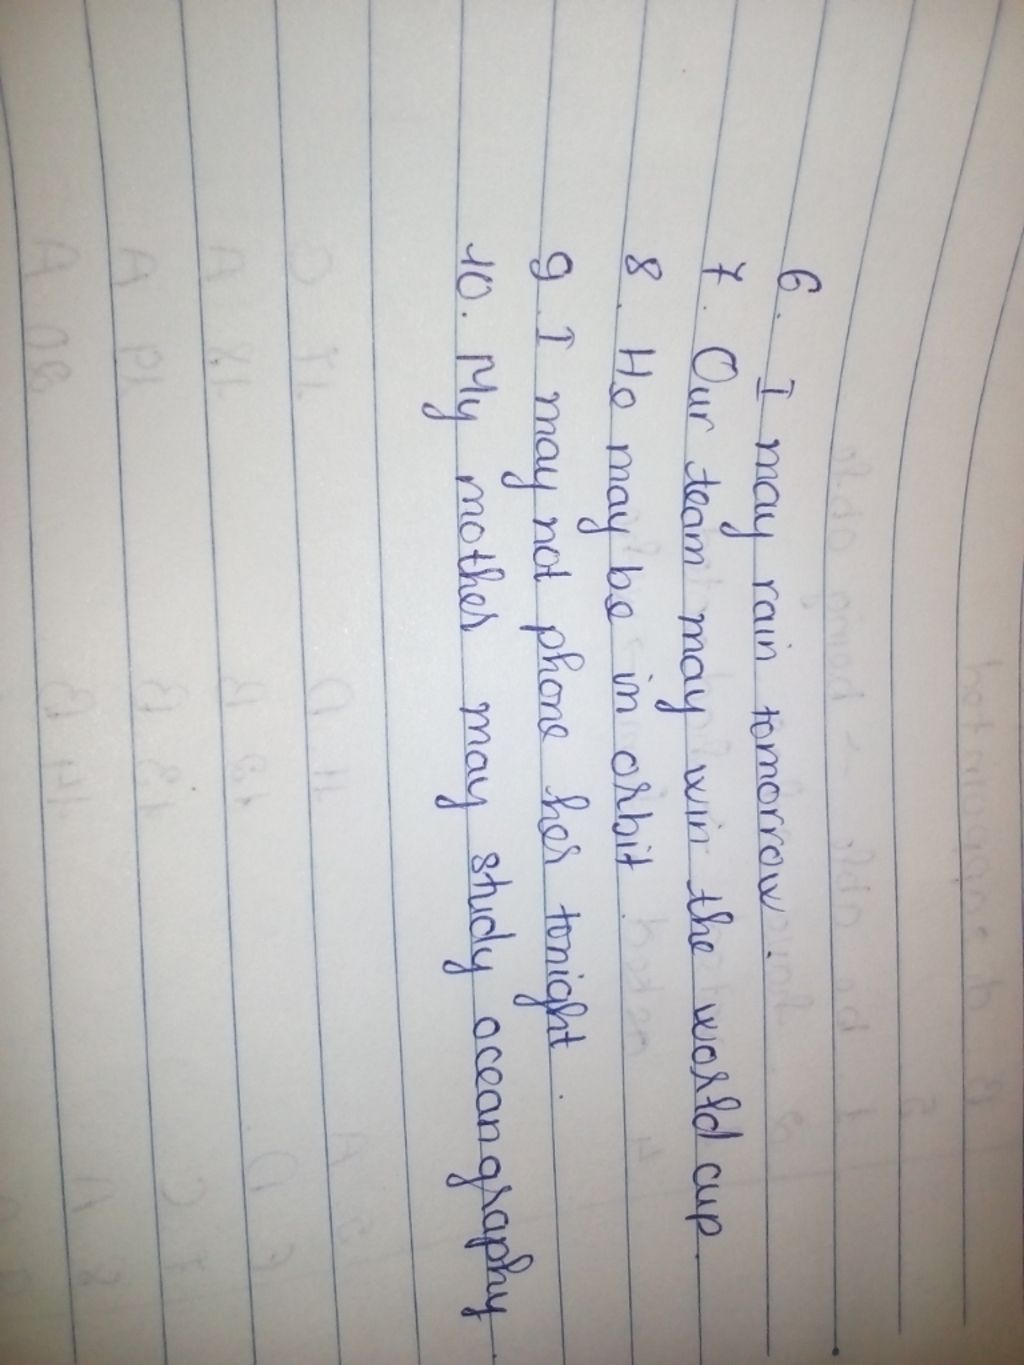 6. I may rain tomorrow.
7. Our team may win the world cup.
8. He may be in orbit.
9. I may not phone her tonight.
10. My mother may study oceangraphy.